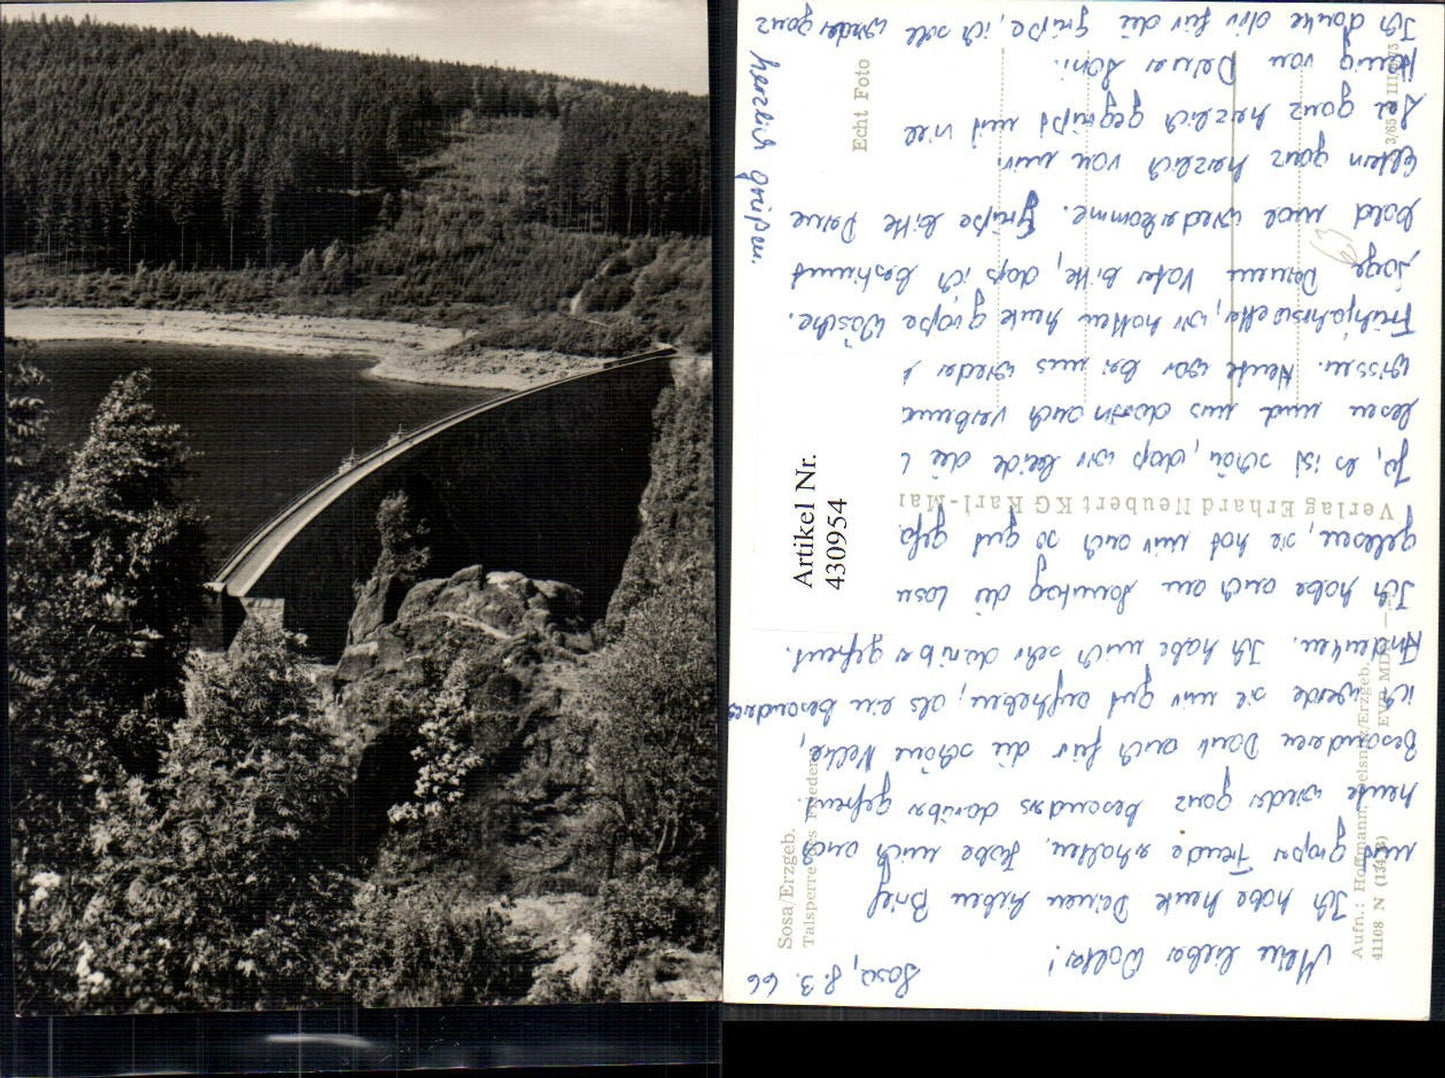 Sosa, 8.3.66
Mein lieber Walter!
Ich habe heute Deinen lieben Brief
mit großer Freude erhalten. Habe mich auch
heute wieder ganz besonders darüber gefreut.
Besonderen Dank auch für die schöne Nelke,
ich werde sie mir gut aufheben, als ein besonderes
Andenken. Ich habe mich sehr darüber gefreut.
Ich habe auch am Sonntag die Losu
gelesen, sie hat mir auch so gut gefa
Ja, es ist schön, daß wir beide die
lesen und uns darin auch verbunde
wissen. Heute war bei uns wieder
Frühjahrswetter, wir hatten heute große Wäsche.
Sage Deinem Vater bitte, daß ich bestimmt
bald mal wiederkomme. Grüße bitte Deine
Eltern ganz herzlich von mir.
Sei ganz herzlich gegrüßt und viel
von Deiner Loni.
Ich danke dir für die Grüße, ich soll wieder ganz
herzlich grüßen.
Sosa/Erzgeb.
Talsperre des Friedens
Echt Foto
Verlag Erhard Neubert KG Karl-Mar
Aufn.: Hoffmann, Oelsnitz/Erzgeb.
41108 N EVP MDN
3/65
Artikel Nr.
430954